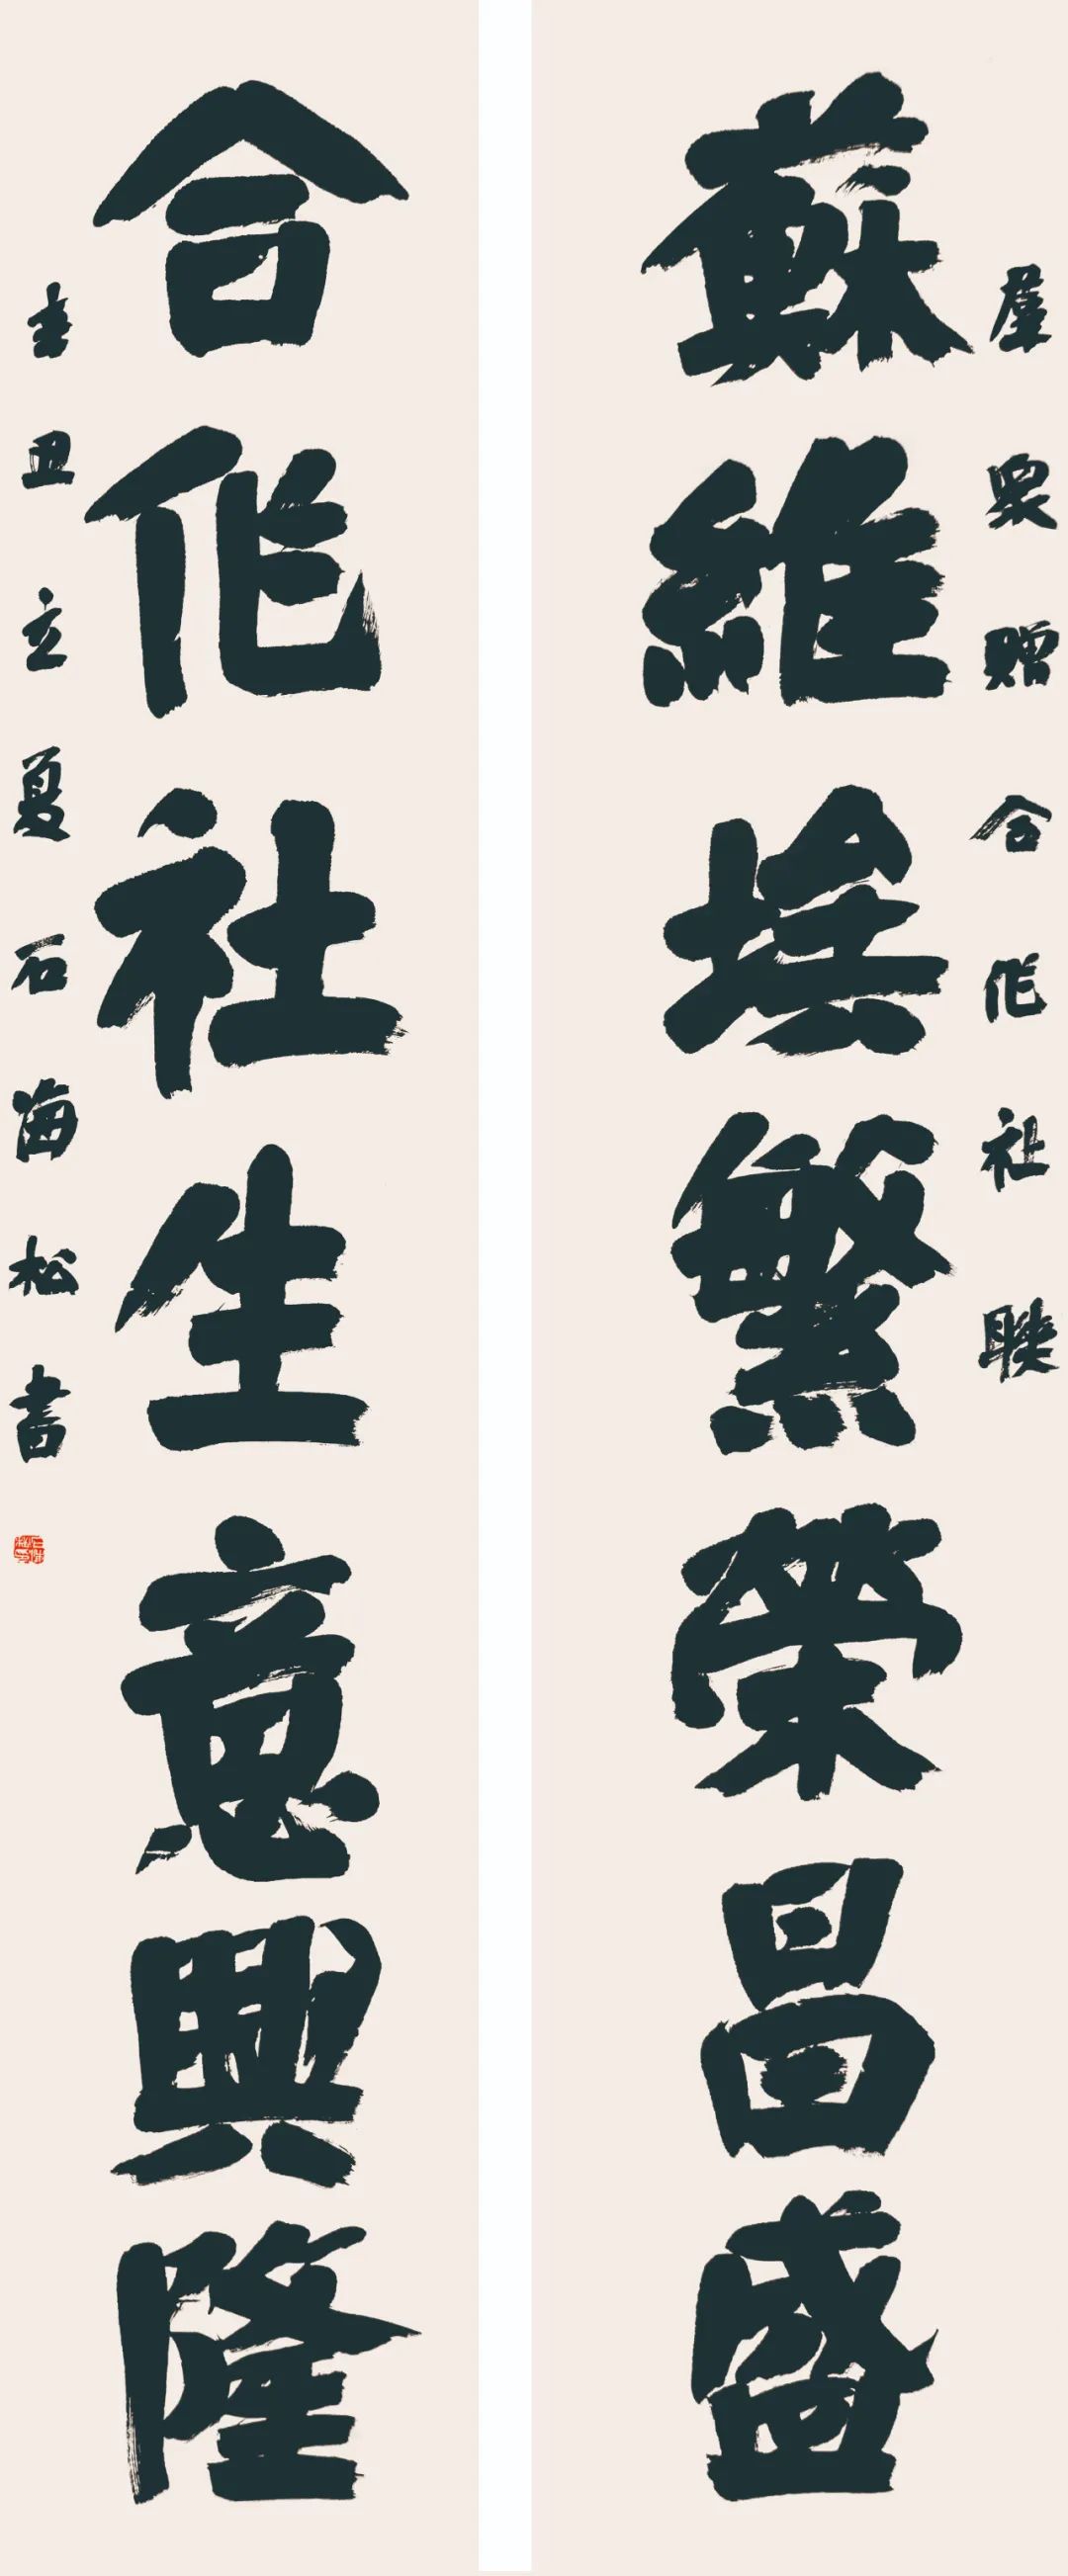 羣眾赠合作社联
蘇維埃繁榮昌盛
合作社生意興隆
辛丑立夏石海松書